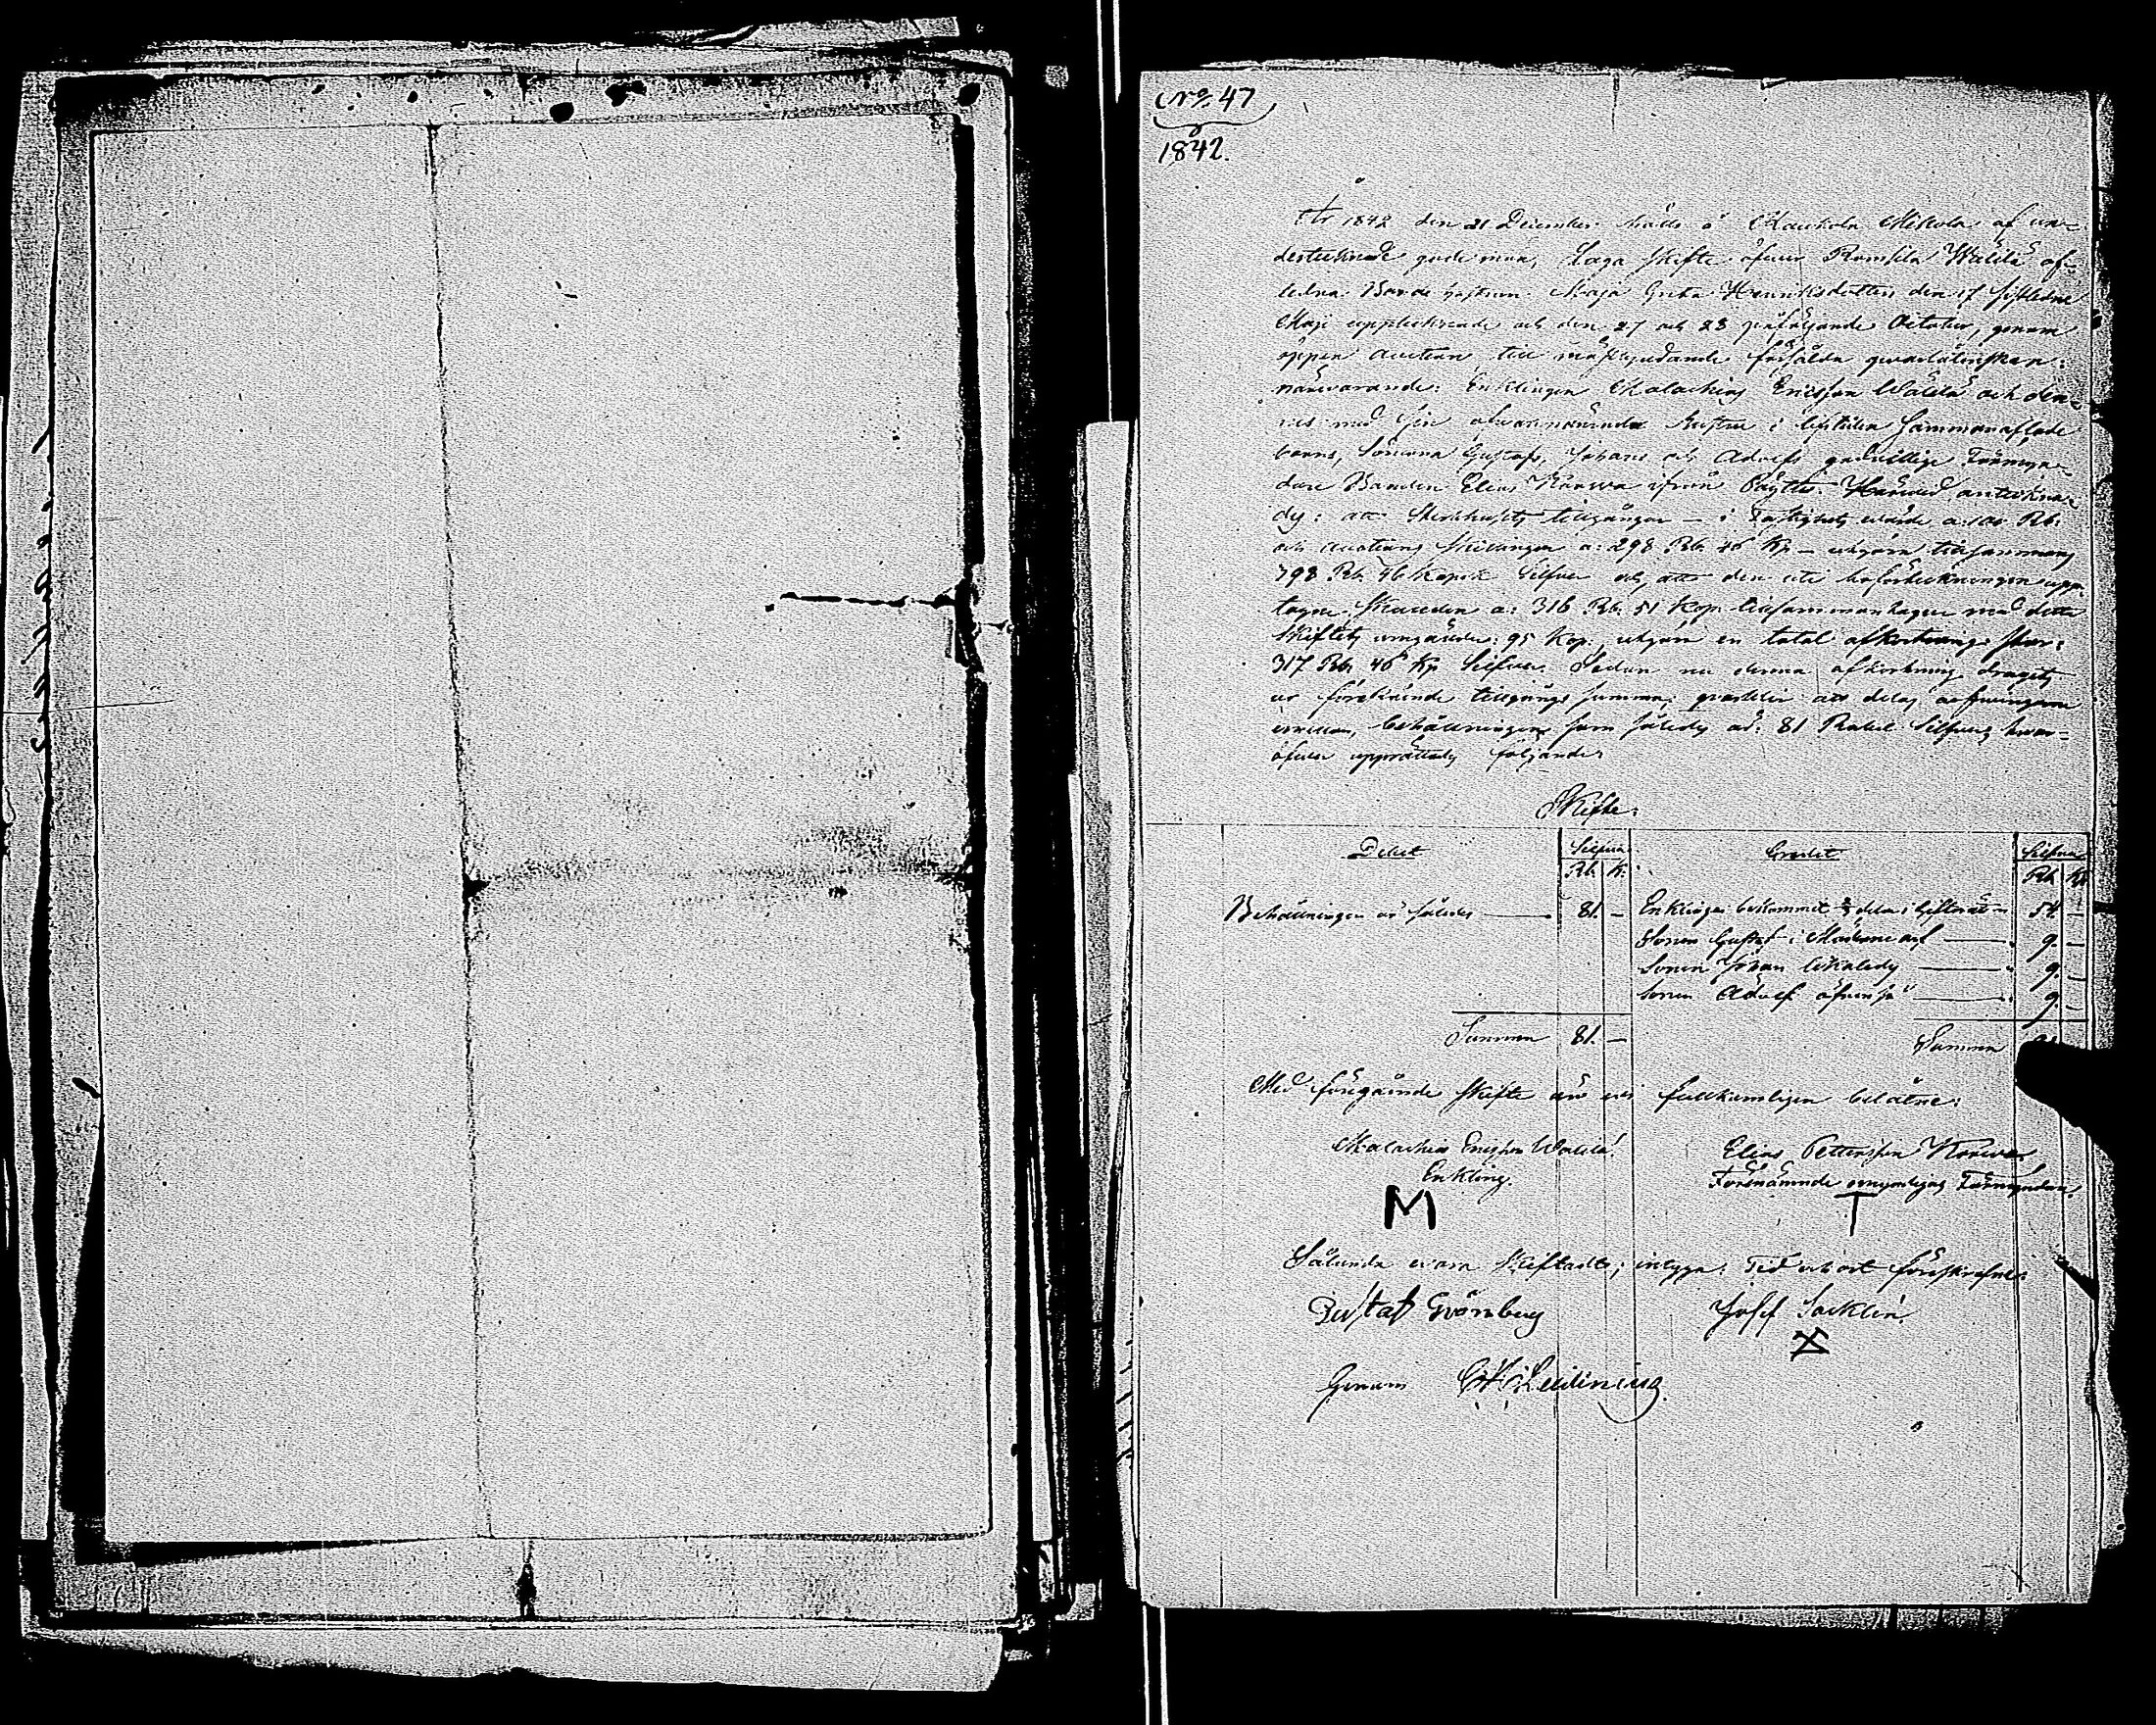 No 47
1842.
År 1842 den 21 December hölls å Mauhola Mikola af un-
dertecknade gode män, Laga skifte öfver Ramsila Wälilä af-
ledna Bonde hustrun Maja Greta Henriksdotters den 17 sistledne
Maji upptecknade och den 27 och 28 påföljande October, genom
öppen auction till mästbjudande försålda qvarlåtenskap:
närvarande: Enklingen Malachias Ericsson Wälilä och den-
nes med sin ofvannämnda hustru i lifstiden sammanaflade
barns, Sönerna Gustafs, Johans och Adolfs godvillige Förmyn-
dare Bonden Elias Korwa ifrån Pöytis. Härvid anteckna-
des: att Sterbhusets tillgångar – i Fastighets värde a: 100 Rb.
och auctions skillingen a: 298 Rb. 46 Kp – utgöra tillsammans
798 Rb. 46 Kopek Silfver och, att den uti boförteckningen upp-
tagne Skulden a: 316 Rb. 51 Kop. tillsammantagen med detta
Skiftets omgälder: 95 Kop. utgöra en total afkortnings stor:
317 Rb. 46 Kp Silfver. Sedan nu denna afkortning dragits
ur förestående tillgångs summa; qvarblir att delas arfvingarne
emellan, behållningen som således är: 81 Rubel Silfver, hvar-
öfver upprättades följande
Skifte:
Debet Silfver Credit Silfver
Rb. K. Rb. K.
Behållningen är således 81. – Enklingen bekommit 2/3 delar i Giftorätt 54. –
Sonen Gustaf i Möderne arf 9. –
Sonen Johan likaledes 9. –
Sonen Adolf äfvenså 9. –
Summa 81. – Summa
Med föregående skifte äro vi fullkomligen belåtne:
Malachias Ericsson Wälilä Elias Pettersson Korwa
Enkling. Förenämnde omyndigas Förmyndare.
M T
Sålunda vara skiftadt, intyga: Tid och ort föreskrefne:
Gustaf Grönberg Josef Säcklin
Genom